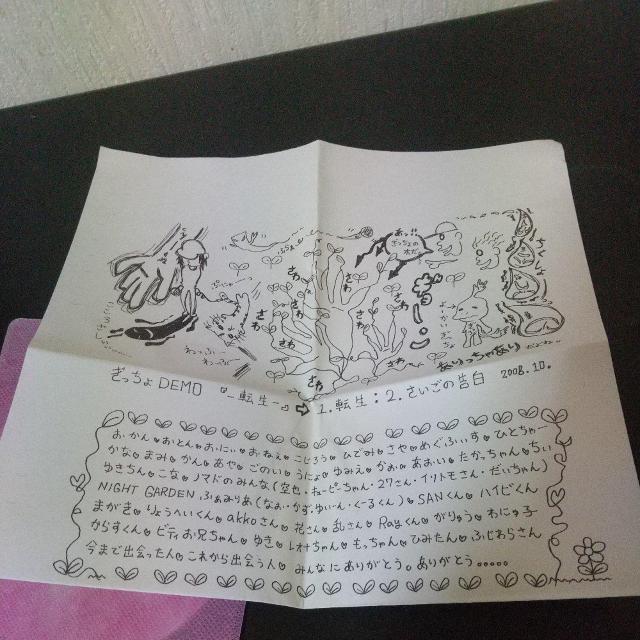 あっ!!
ぎっちょの
木だ
ざわ
ざわ
ざわ
ざわ
ざわ
ざわ
ざわ
ぎっちょDEMO 『_転生_』⇨ 1.転生:2.さいごの告白 2008.10.
お・かん♥おとん♥おにぃ♥おねぇ♥こじろう♥ひでみ♥さや♥めぐふぃす♥ひとちゃー
かな♥まみ♥かん♥あや♥ごのい♥うにょ♥ゆみえ♥かぉ♥あぉい♥たかっちゃん♥ちぃ
ゆきちん♥こな♥ノマドのみんな(空也・キューピーちゃん・27さん・イソトモさん・だいちゃん)
NIGHT GARDEN.ふぁみりあ(なぉ・かず・ゆぃーん・ぐーるくん)♥SANくん♥ハイビくん
まがき♥りょうへいくん♥akkoさん♥花さん♥乱さん♥Rayくん♥がりゅう♥わにゅ子
からすくん♥ビティお兄ちゃん♥ゆき♥レオナちゃん♥もっちゃん♥ひみたん♥ふじわらさん
今まで出会った人♥これから出会う人♥みんなにありがとう。ありがとう.....